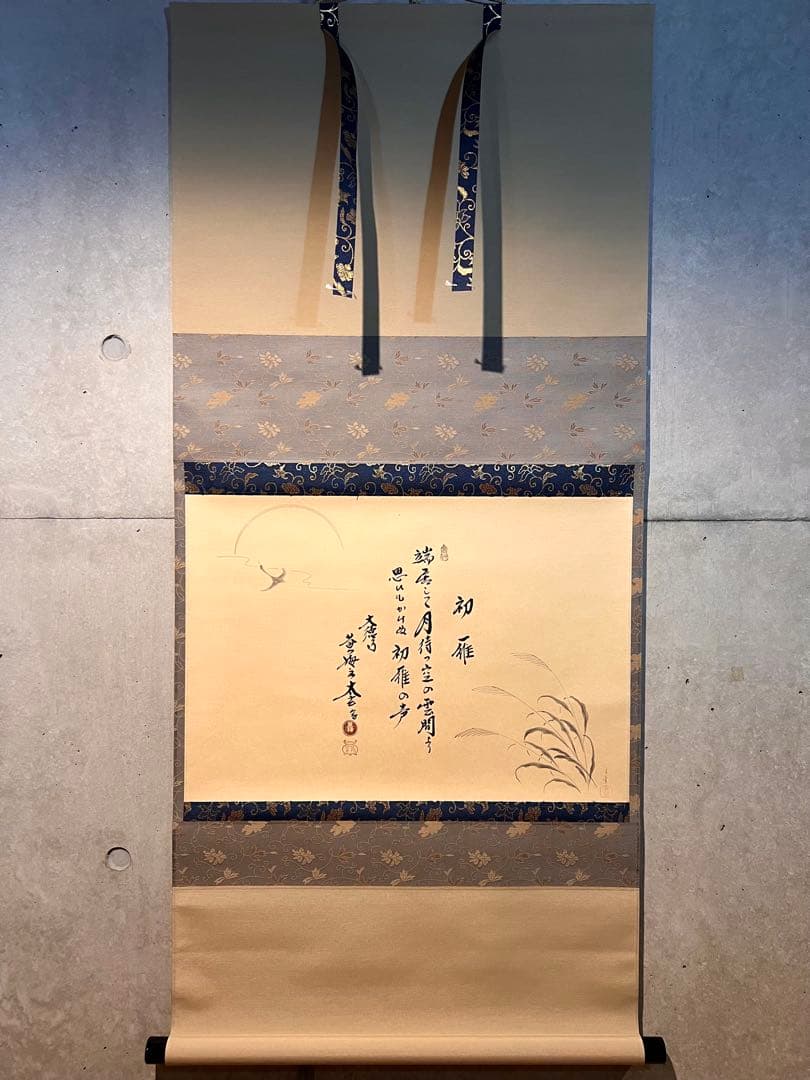 初雁
端居して月待つ空の雲間より
思ひもかけぬ初雁の声